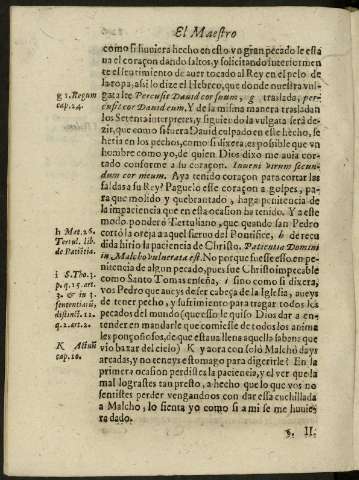 El Maestro
como si huviera hecho en esto vn gran pecado le està
va el coraçon dando saltos, y solicitando interiormen
te el sentimiento de auer tocado al Rey en el pelo de
la ropa, assi lo dize el Hebreo, que donde nuestra vul-
g 1. Regum
cap. 24.
gata lee Percusit Dauid cor suum, g traslada, per-
cusit cor Dauid eum. Y de la misma manera trasladan
los Setenta interpretes, y siguiendo la vulgata serà de-
zir, que como si fuera Dauid culpado en esse hecho, se
heria en los pechos, como si dixera, es possible que vn
hombre como yo, de quien Dios dixo me auia cor-
tado conforme a su coraçon. Inueni virum secun-
dum cor meum. Aya tenido coraçon para cortar las
faldas a su Rey? Paguelo esse coraçon a golpes, pa-
ra que molido y quebrantado, haga penitencia de
la impaciencia que en esta ocasion ha tenido. Y a este
h Mat. 26.
Tertul. lib.
de Patiẽtia.
modo ponderò Tertuliano, que quando san Pedro
cortò la oreja a aquel sieruo del Pontifice, h de recu
dida hirio la paciencia de Christo. Patientia Domini
in Malcho vulnerata est. No porque fuesse esso en pe-
nitencia de algun pecado, pues fue Christo impecable
i S. Tho. 3.
p. q. 15. art.
3. & in 3.
sententiarũ,
distinct. 12.
q. 2. art. 2.
como Santo Tomas enseña, i sino como si dixera,
vos Pedro que aueys de ser cabeça de la Iglesia, aueys
de tener pecho, y sufrimiento para tragar todos los
pecados del mundo (que esso le quiso Dios dar a en-
tender en mandarle que comiesse de todos los anima
les ponçoñosos, de que estaua llena aquella sabana que
K Actuũ
cap. 10.
vio baxar del cielo) K y aora con solo Malchò days
arcadas, y no teneys estomago para digerirle? En la
primera ocasion perdistes la paciencia, y el ver que la
mal lograstes tan presto, a hecho que lo que vos no
sentistes perder vengandoos con dar essa cuchillada
a Malcho, lo sienta yo como si a mi se me huuie
ra dado.
§. II.